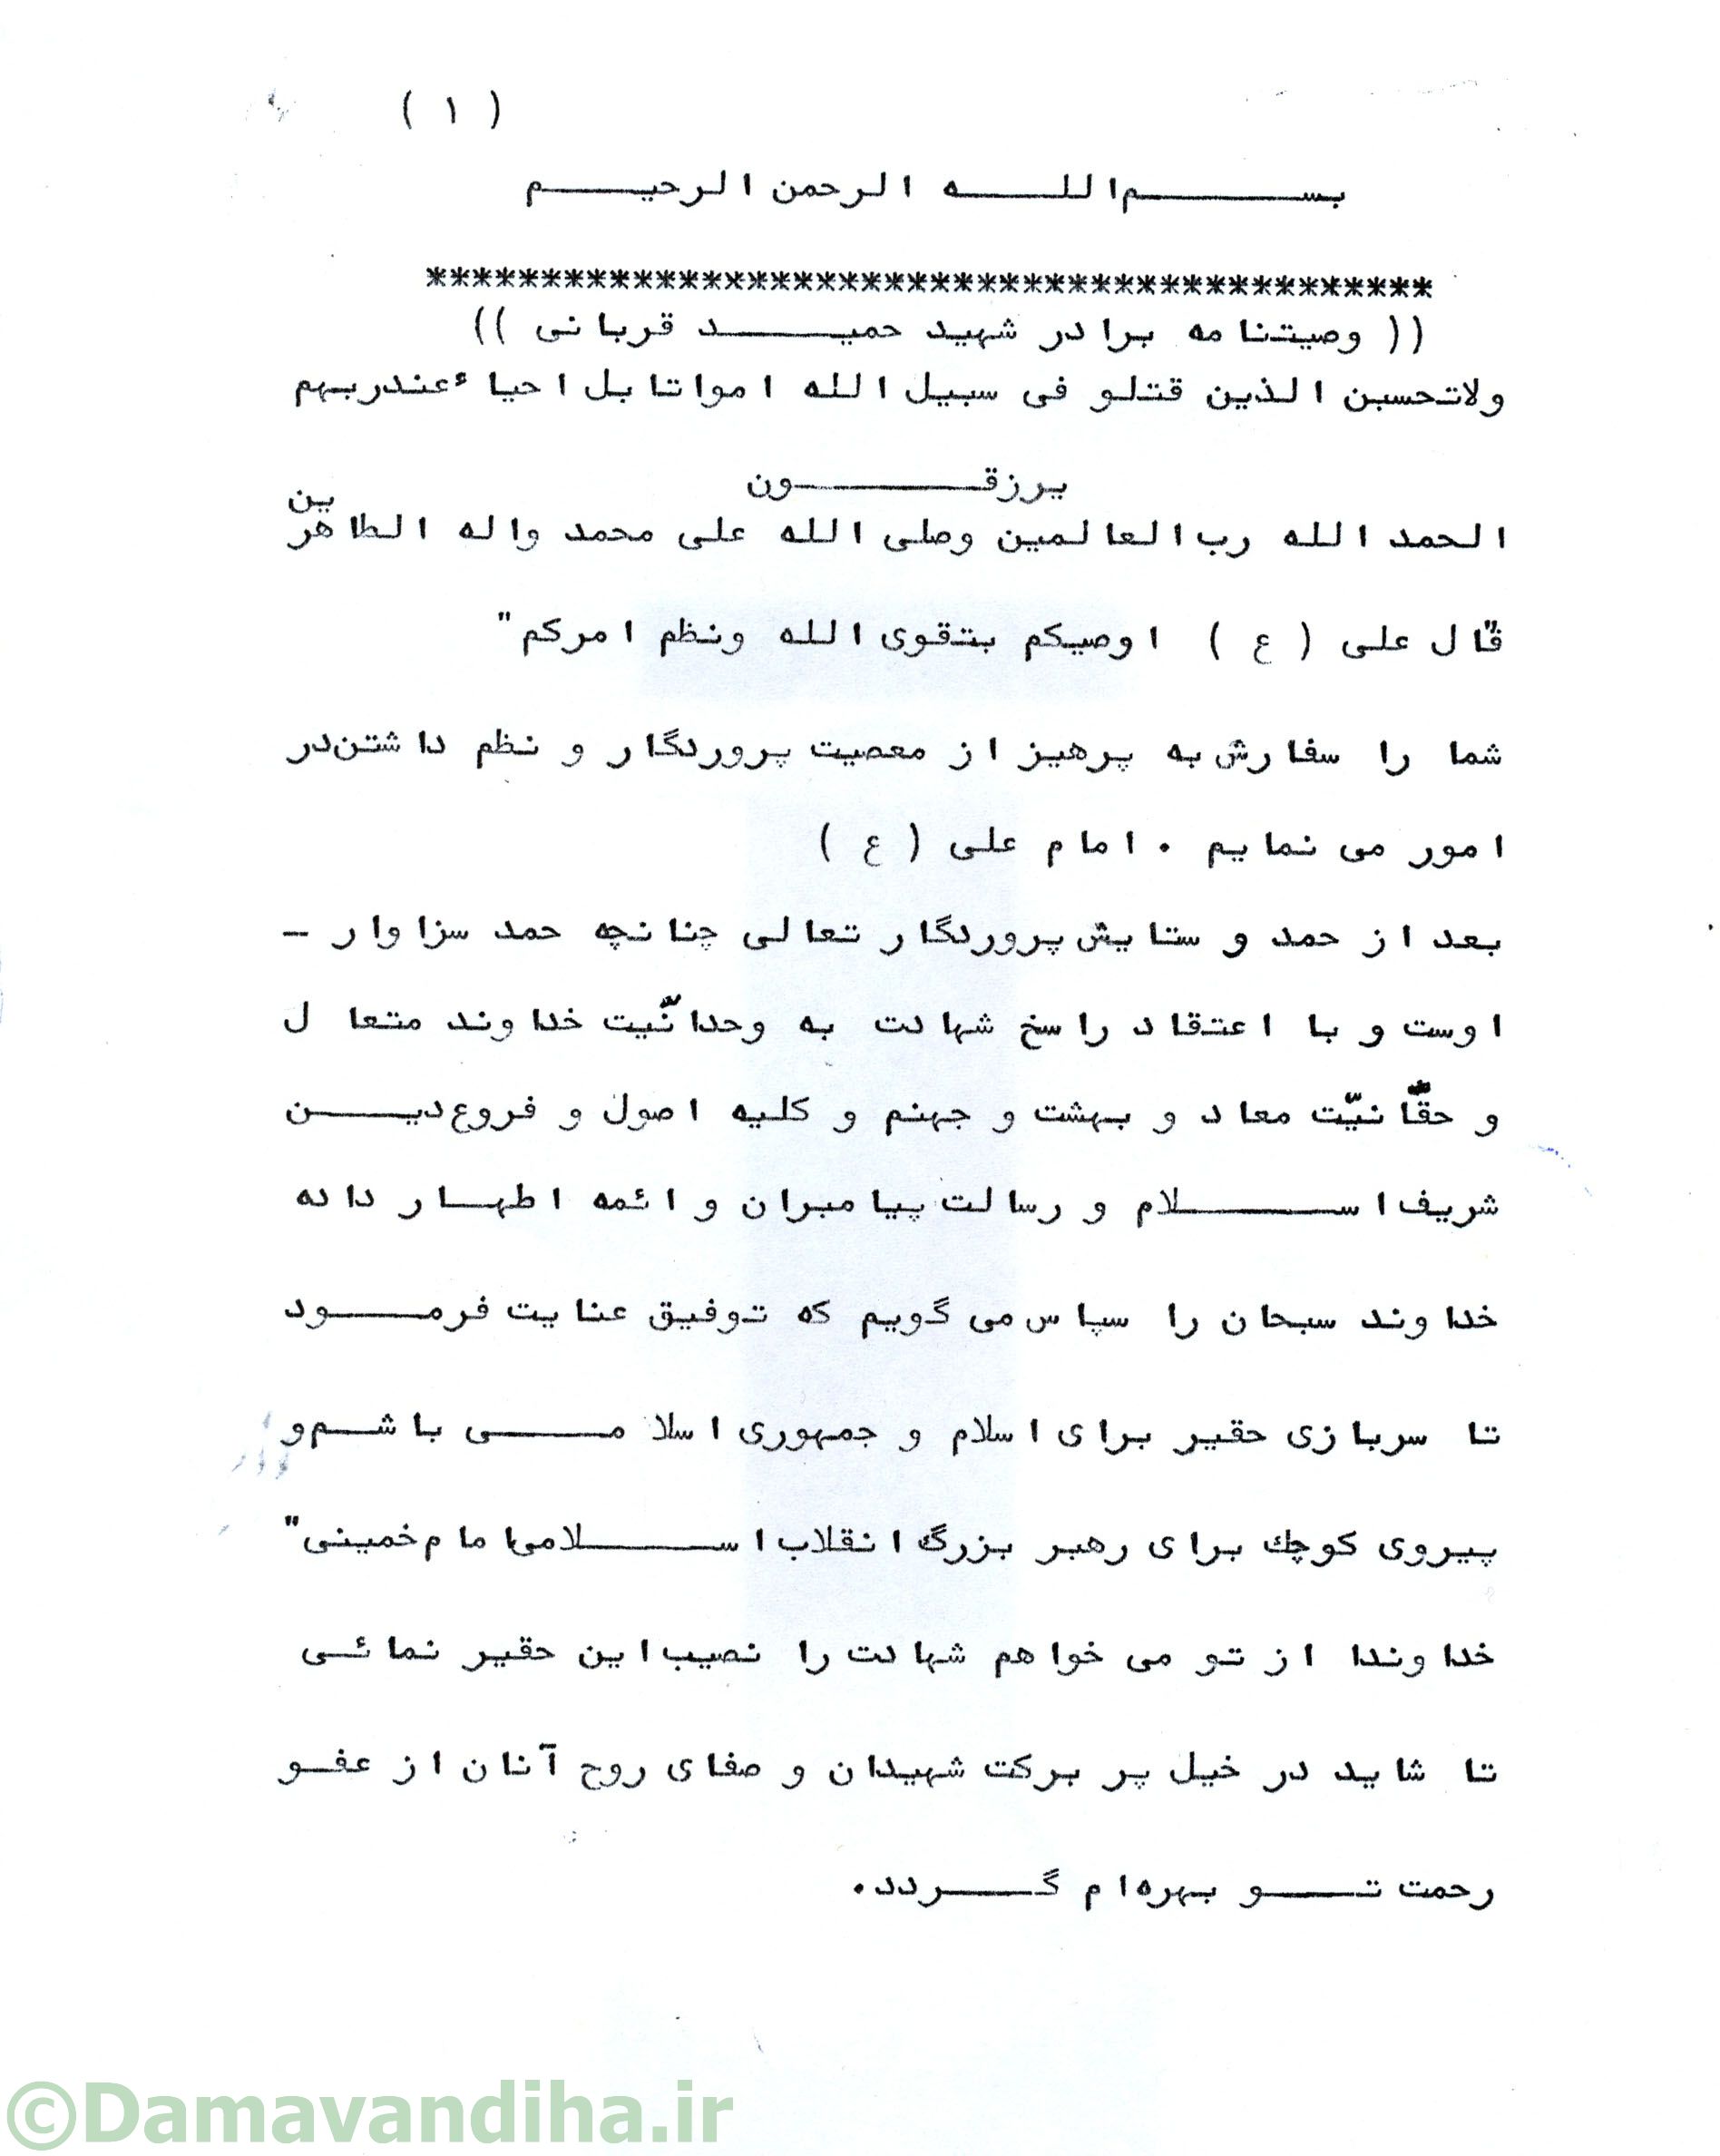 ( ۱ )
بسم الله الرحمن الرحیم
********************************************
(( وصیتنامه برادر شهید حمید قربانی ))
ولاتحسبن الذین قتلو فی سبیل الله امواتا بل احیاء عندربهم
یرزقون
الحمد الله رب العالمین وصلی الله علی محمد واله الطاهرین
"قال علی ( ع ) اوصیکم بتقوی الله ونظم امرکم"
شما را سفارش به پرهیز از معصیت پروردگار و نظم داشتن در
امور می نمایم . امام علی ( ع )
بعد از حمد و ستایش پروردگار تعالی چنانچه حمد سزاوار -
اوست و با اعتقاد راسخ شهادت به وحدانّیت خداوند متعال
و حقّانیّت معاد و بهشت و جهنم و کلیه اصول و فروع دین
شریف اسلام و رسالت پیامبران و ائمه اطهار داده
خداوند سبحان را سپاس می گویم که توفیق عنایت فرمود
تا سربازی حقیر برای اسلام و جمهوری اسلامی باشم و
پیروی کوچک برای رهبر بزرگ انقلاب اسلامی امام خمینی"
خداوندا از تو می خواهم شهادت را نصیب این حقیر نمائی
تا شاید در خیل پر برکت شهیدان و صفای روح آنان از عفو
رحمت تو بهره ام گردد.
©Damavandiha.ir